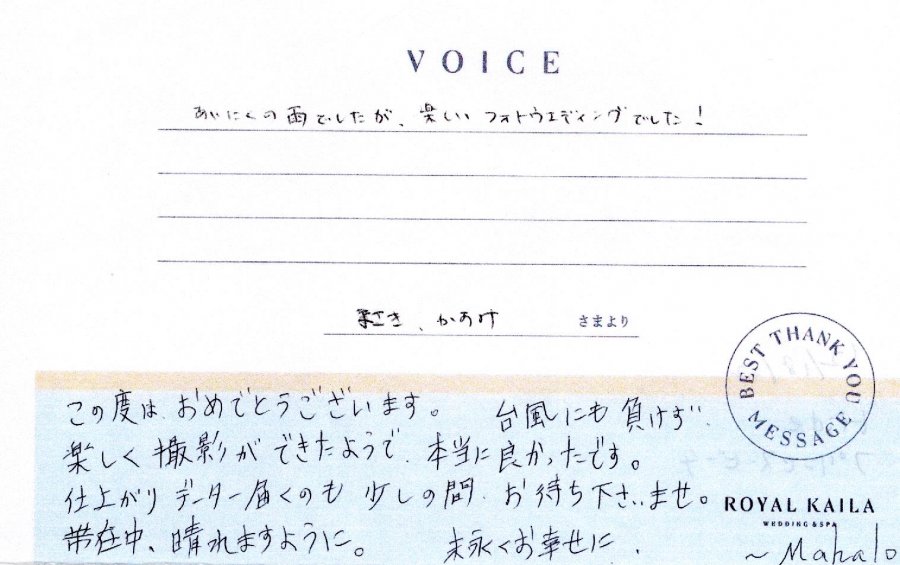 VOICE
あいにくの雨でしたが、楽しいフォトウエディングでした!
さまより
BEST THANK YOU MESSAGE
この度は おめでとうございます。 台風にも負けず
楽しく撮影ができたようで 本当に良かったです。
仕上がりデーター届くのも少しの間、お待ち下さいませ。
滞在中、晴れますように。 末永くお幸せに、
ROYAL KAILA
WEDDING & SPA
~Mahalo